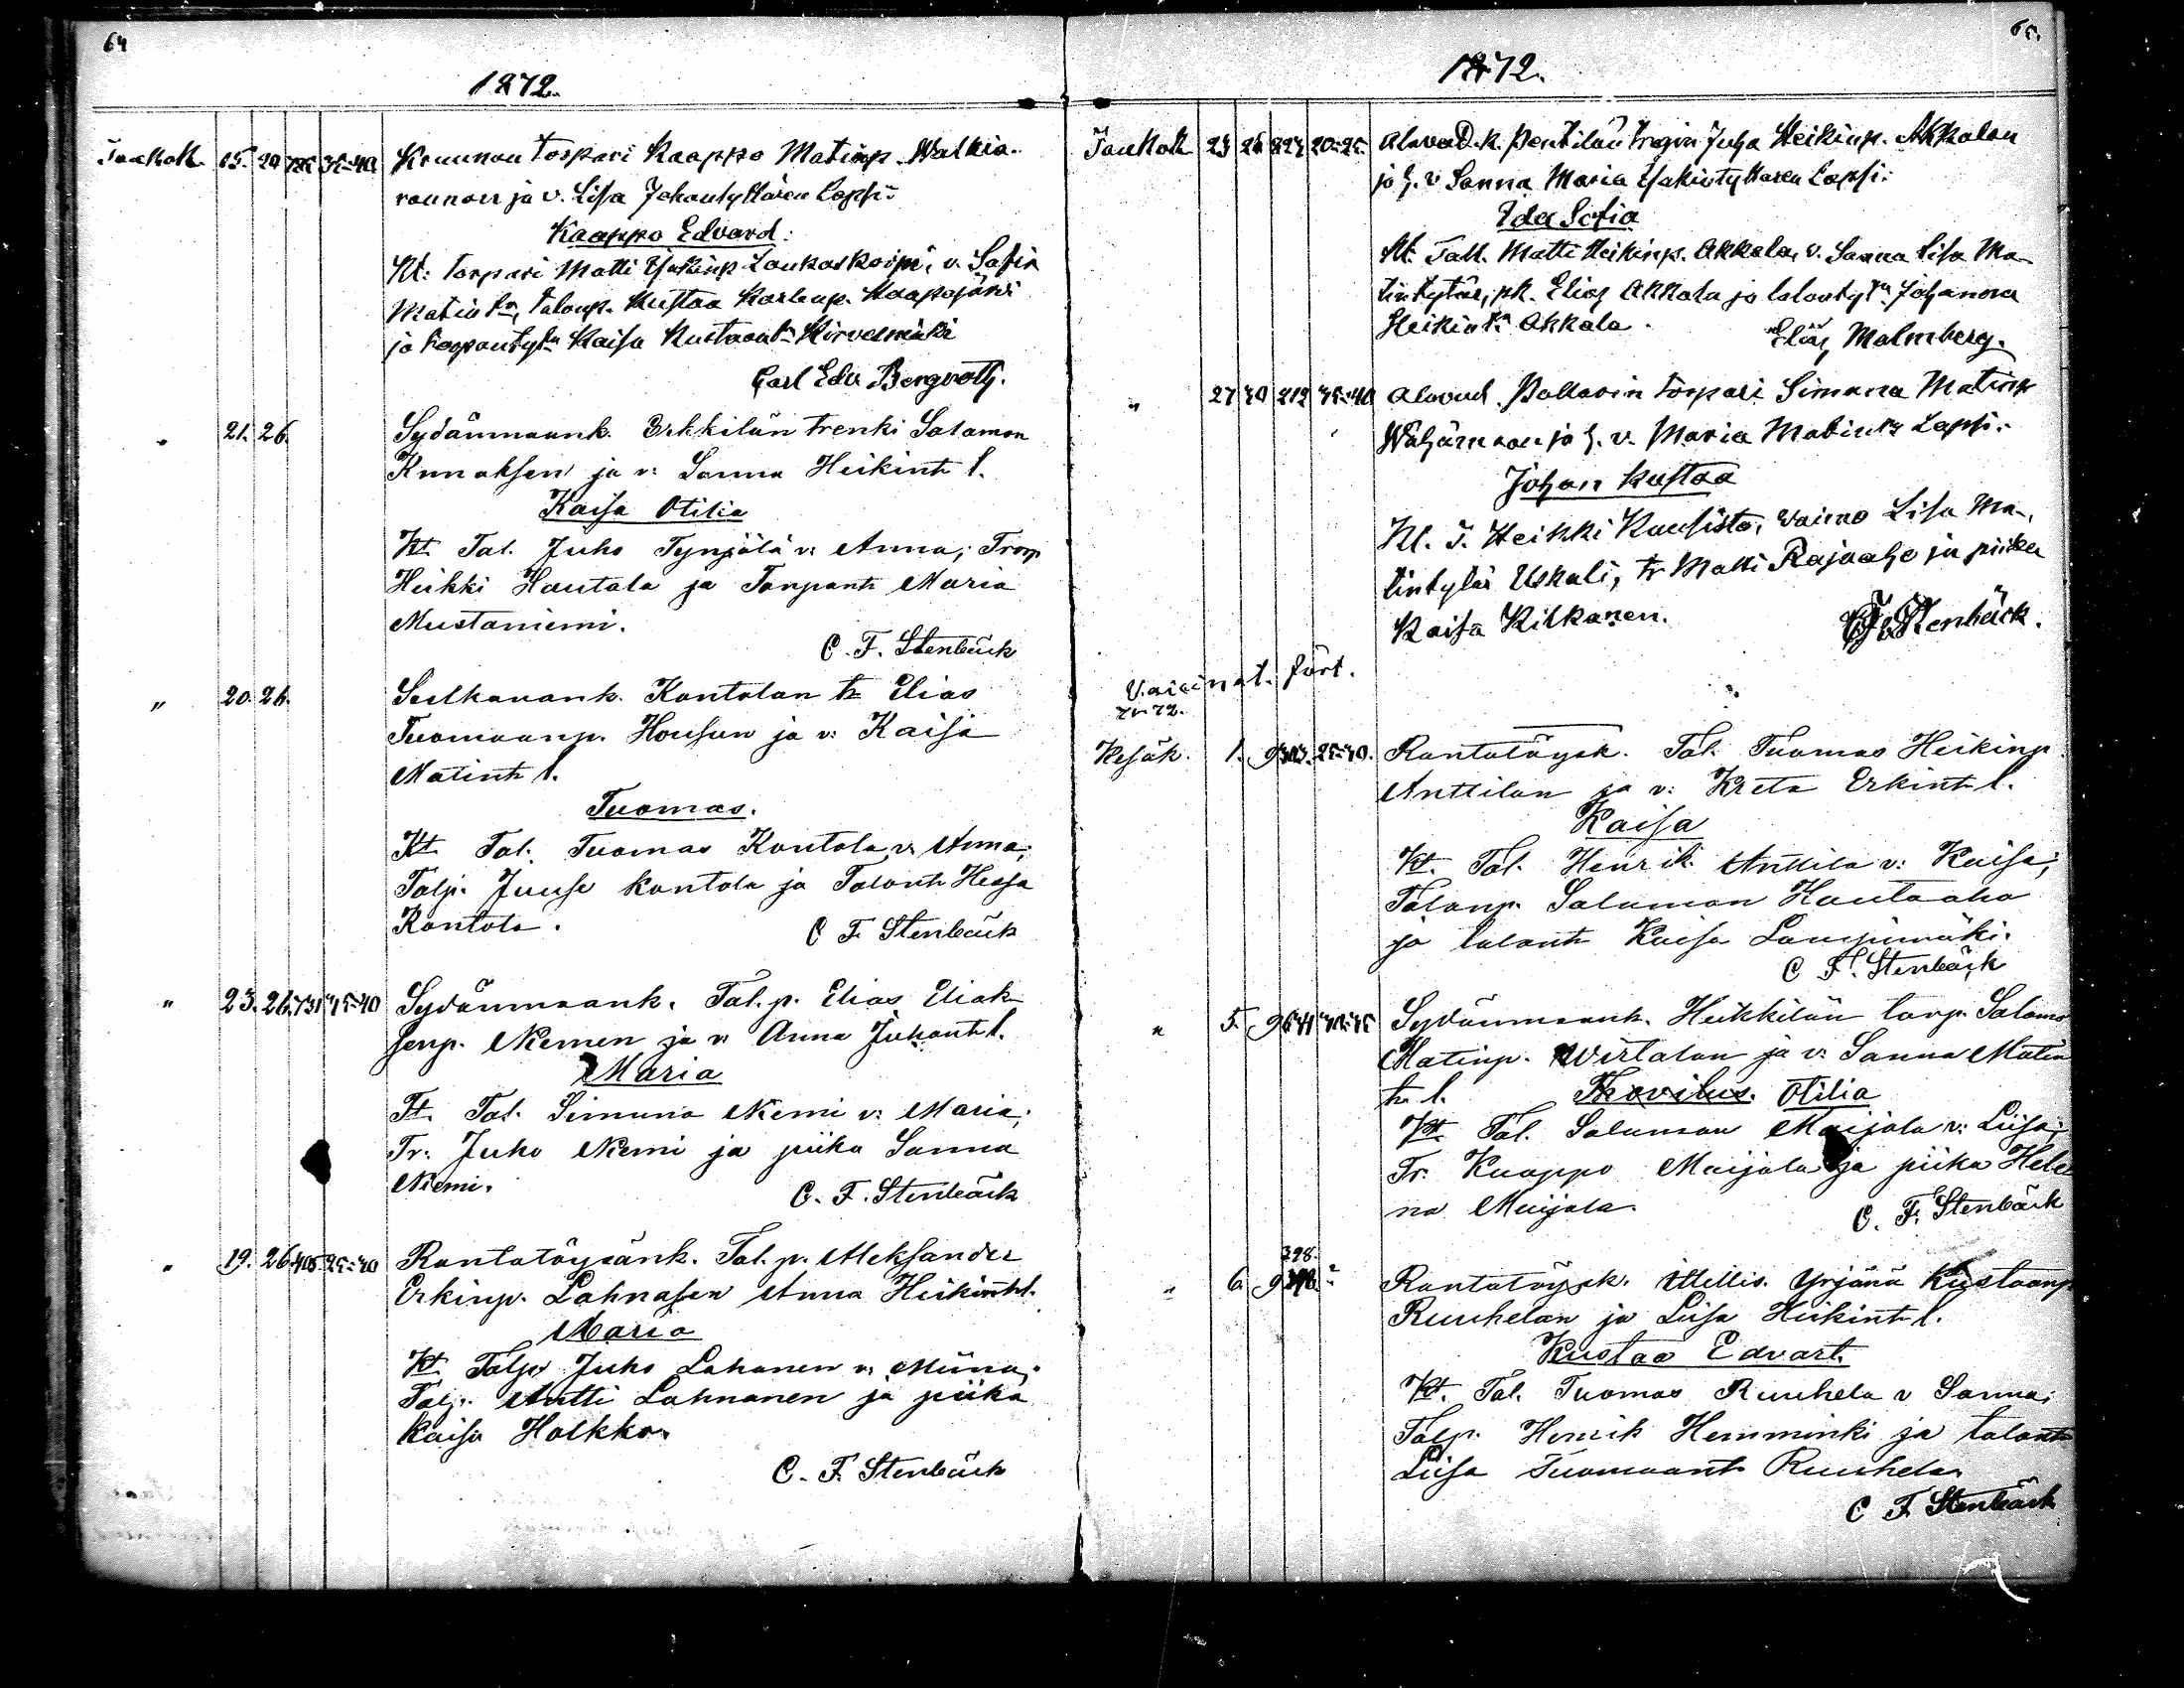 64
1872.
Toukok. 15. 20 35-40 Kruunun torpari Kaappo Matinp. Walkia-
rounoen ja v. Lisa Johantyttären Lapsi:
Kaappo Edvard:
Kt: torpari Matti Isakinp Loukaskorpi, v. Sofia
Matin tr, talonp. Kustaa Karlenp. Haapojärvi
ja torpantytr Kaisa Kustaant. Kirvesmäki
Carl Edv. Bergroth.
" 21. 26. Sydänmaank. Erkkilän trenki Salamon
Knnaksen ja v: Sanna Heikintr l.
Kaisa Otilia
Kt. Tal. Juho Tynjälä v: Anna; Trorp
Heikki Hautala ja Torpantr Maria
Mustaniemi.
C. F. Stenbäck
" 20. 26. Seelkavank. Kontolan tr Elias
Tuomaanp. Housun ja v: Kaisa
Matintr l.
Tuomas.
Kt. Tal. Tuomas Kontola v. Anna;
Talp. Juuse Kontola ja Talontr Hessa
Kontola.
C F. Stenbäck
" 23. 26. 731 35-40 Sydänmaank. Tal. p. Elias Eliak-
senp. Niemen ja v: Anna Juhantr l.
Maria
Kt. Tal. Simuna Niemi v: Maria;
Tr. Juho Niemi ja piika Sanna
Niemi.
C. F. Stenbäck
" 19. 26. 405. 25-30 Rantatöysänk. Tal. p. Aleksander
Erkinp. Lahnasen Anna Heikintr l.
Maria
Kt. Talp. Juho Lahanen v: Miina;
Talp. Antti Lahnanen ja piika
Kaisa Holkko.
C. F. Stenbäck
65.
1872.
Toukok 23 26 823 20-25. Alavud. k. Pentilän trengin Juha Heikinp. Akkolan
ja h. v Sanna Maria Isakintyttären Lapsi:
Ida Sofia
Kt. Tall. Matti Heikinp. Akkola, v. Sanna Lisa Ma-
tintytär, pk. Elias Akkola ja talontytr Johanna
Heikintr Akkala.
Elias Malmberg.
" 27 30 212 35-40 Alavud. Pollarin torpari Simuna Matinp
Wähämaan ja h. v. Maria Matintr Lapsi:
Johan Kustaa
Kt. T. Heikki Kausisto, Waimo Lisa Ma-
tintytär Uskali, tr Matti Rajaaho ja piika
Kaisa Kitkanen.
C F Stenbäck.
Kesäk. 1. 9 303. 25-30. Rantatöysk. Tal. Tuomas Heikinp
Anttilan ja v: Kreta Erkintr l.
Kaisa
Kt. Tal. Henrik Anttila v: Kaisa;
Talonp. Saluman Hautaaho
ja talontr Kaisa Lampimäki.
C F. Stenbäck
" 5. 9 Sydänmaank. Heikkilän torp. Salamo
Matinp. Wirtalan ja v: Sanna Matin
tr l. Theovilus. Otilia
Kt. Tal. Saluman Maijala v: Liisa;
Tr. Kaappo Maijala ja piika Hele
na Maijala.
C. F. Stenbäck
398.
" 6. 9 Rantatöysk. Itellis. Yrjänä Kustaanp
Ruuhelan ja Liisa Heikintr l.
Kustaa Edvart.
Kt. Tal. Tuomas Ruuhela v Sanna;
Talp. Henrik Hemminki ja talontr
Liisa Tuomaantr Ruuhela.
C F. Stenbäck